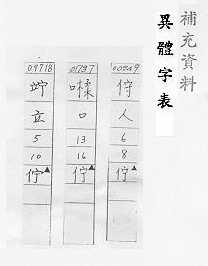 補充資料
異體字表
人
6
8
佇▲
01797
口
13
16
佇▲
04718
竚
立
5
10
佇▲